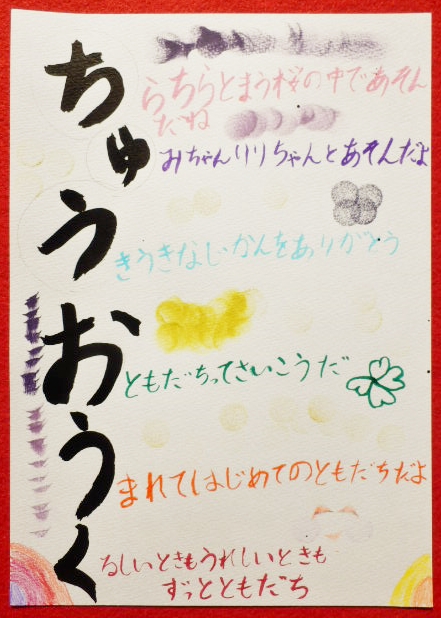 ちゅうおうく
らちらとまう桜の中であそん
だね
みちゃんりりちゃんとあそんだよ
きうきなじかんをありがとう
ともだちってさいこうだ
まれてはじめてのともだちだよ
るしいときもうれしいときも
ずっとともだち